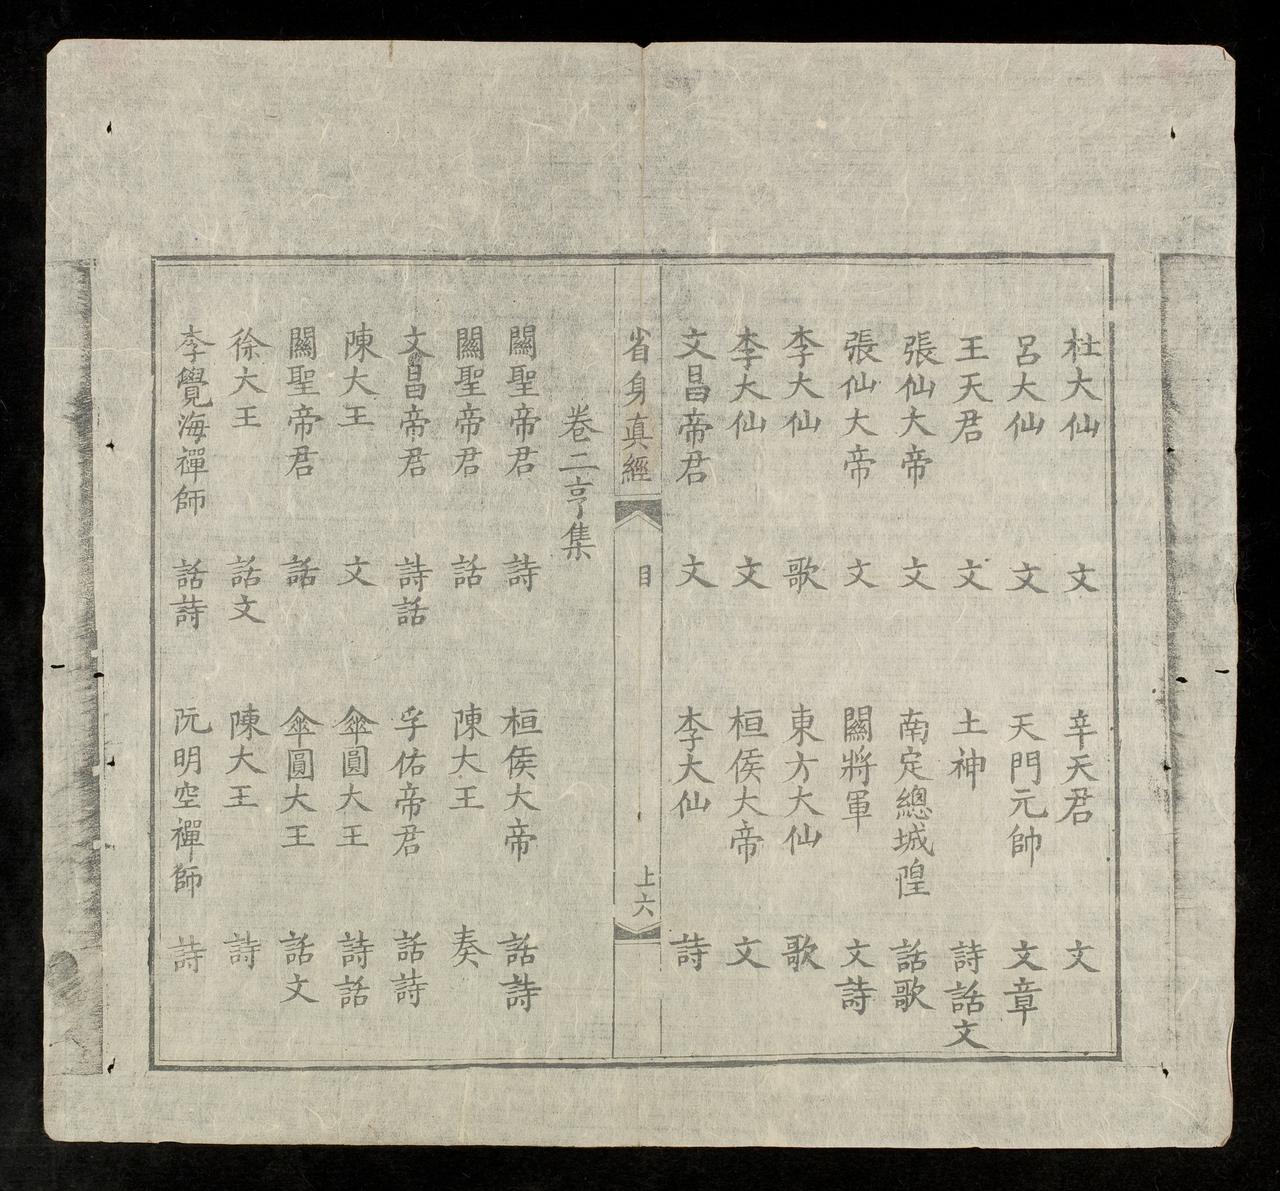 杜大仙 文 辛天君 文
呂大仙 文 天門元帥 文章
王天君 文 土神 詩話文
張仙大帝 文 南定總城隍 話歌
張仙大帝 文 關將軍 文詩
李大仙 歌 東方大仙 歌
李大仙 文 桓侯大帝 文
文昌帝君 文 李大仙 詩
省身真經 目 上六
卷二亨集
關聖帝君 詩 桓侯大帝 話詩
關聖帝君 話 陳大王 奏
文昌帝君 詩話 孚佑帝君 話詩
陳大王 文 傘圓大王 詩話
關聖帝君 話 傘圓大王 話文
徐大王 話文 陳大王 詩
李覺海禪師 話詩 阮明空禪師 詩